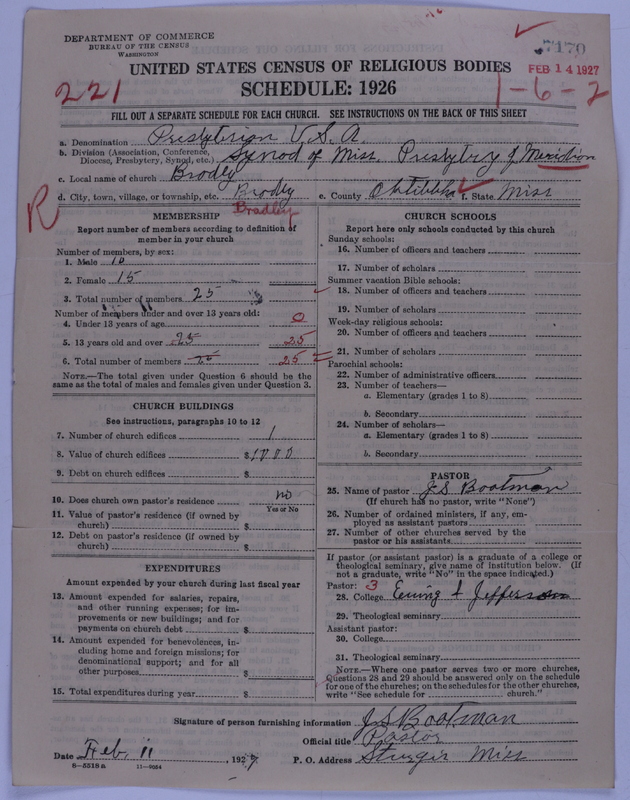 DEPARTMENT OF COMMERCE
BUREAU OF THE CENSUS
WASHINGTON
7170
FEB 14 1927
UNITED STATES CENSUS OF RELIGIOUS BODIES
221
SCHEDULE: 1926
1-6-2
FILL OUT A SEPARATE SCHEDULE FOR EACH CHURCH. SEE INSTRUCTIONS ON THE BACK OF THIS SHEET
a. Denomination Presbyterian U.S.A.
b. Division (Association, Conference, Diocese, Presbytery, Synod, etc.) Synod of Miss. Presbytry of Meridian
c. Local name of church Brodley
d. City, town, village, or township, etc. Brodley e. County Oktibbha f. State Miss
R
Bradley
MEMBERSHIP
Report number of members according to definition of
member in your church
Number of members, by sex:
1. Male 10
2. Female 15
3. Total number of members 25
Number of members under and over 13 years old:
4. Under 13 years of age 0
5. 13 years old and over 25 25
6. Total number of members 25 25
NOTE.—The total given under Question 6 should be
same as the total of males and females given under Question 3.
CHURCH BUILDINGS
See instructions, paragraphs 10 to 12
7. Number of church edifices 1
8. Value of church edifices $1000
9. Debt on church edifices $
10. Does church own pastor's residence no
Yes or No
11. Value of pastor's residence (if owned by
church) $
12. Debt on pastor's residence (if owned by
church) $
EXPENDITURES
Amount expended by your church during last fiscal year
13. Amount expended for salaries, repairs,
and other running expenses; for im-
provements or new buildings; and for
payments on church debt $
14. Amount expended for benevolences, in-
cluding home and foreign missions; for
denominational support; and for all
other purposes $
15. Total expenditures during year $
CHURCH SCHOOLS
Report here only schools conducted by this church
Sunday schools:
16. Number of officers and teachers
17. Number of scholars
Summer vacation Bible schools:
18. Number of officers and teachers
19. Number of scholars
Week-day religious schools:
20. Number of officers and teachers
21. Number of scholars
Parochial schools:
22. Number of administrative officers
23. Number of teachers—
a. Elementary (grades 1 to 8)
b. Secondary
24. Number of scholars—
a. Elementary (grades 1 to 8)
b. Secondary
PASTOR
25. Name of pastor J S Bootman
(If church has no pastor, write "None")
26. Number of ordained ministers, if any, em-
ployed as assistant pastors
27. Number of other churches served by the
pastor or his assistants
If pastor (or assistant pastor) is a graduate of a college or
theological seminary, give name of institution below. (If
not a graduate, write "No" in the space indicated.)
Pastor: 3
28. College Ewing & Jefferson
29. Theological seminary
Assistant pastor:
30. College
31. Theological seminary
NOTE.—Where one pastor serves two or more churches,
Questions 28 and 29 should be answered only on the schedule
for one of the churches; on the schedules for the other churches,
write "See schedule for church."
Signature of person furnishing information J S Bootman
Official title Pastor
Date Feb 11, 1927 P. O. Address Sturgis Miss
8-5518a 11-9054